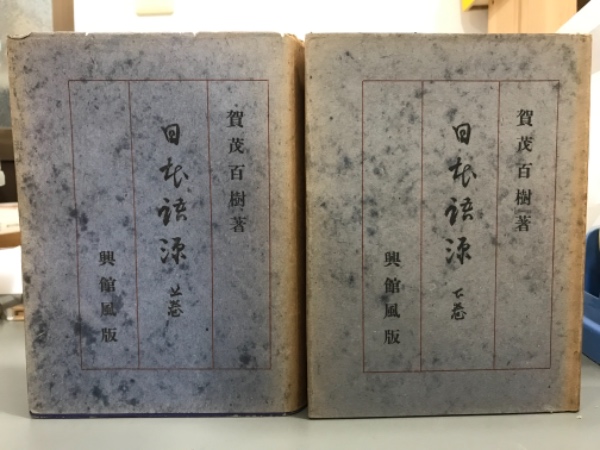 賀茂百樹著
日本語源 上巻
興館風版
賀茂百樹著
日本語源 下巻
興館風版